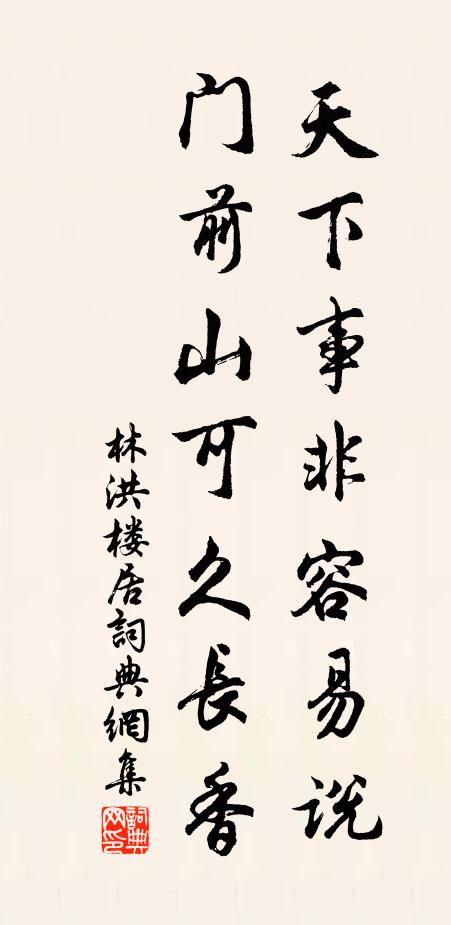 天下事非容易説
门前山可久長香
林洪楼居詞典網集
詞典网印